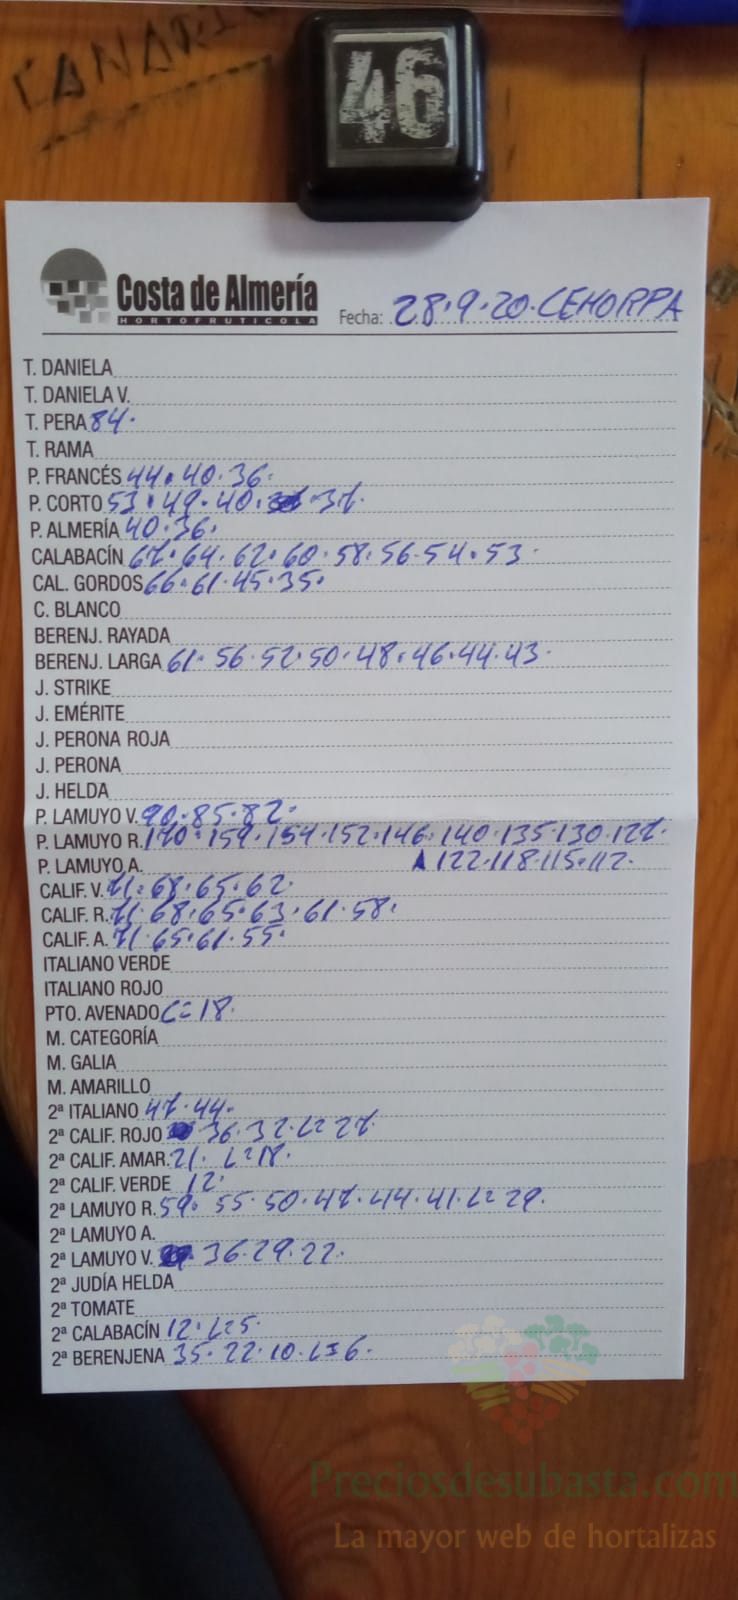 CANARI
46
Costa de Almería
HORTOFRUTICOLA
Fecha: 28.9.20.CEHORPA
T. DANIELA
T. DANIELA V.
T. PERA 84.
T. RAMA
P. FRANCÉS 44.40.36.
P. CORTO 53.49.40. 37.
P. ALMERÍA 40.36.
CALABACÍN 67.64.62.60.58.56.54.53.
CAL. GORDOS 66.61.45.35.
C. BLANCO
BERENJ. RAYADA
BERENJ. LARGA 61.56.52.50.48.46.44.43.
J. STRIKE
J. EMÉRITE
J. PERONA ROJA
J. PERONA
J. HELDA
P. LAMUYO V. 90.85.82.
P. LAMUYO R. 170.159.154.152.146.140.135.130.127.
P. LAMUYO A. 122.118.115.112.
CALIF. V. 71.68.65.62.
CALIF. R. 71.68.65.63.61.58.
CALIF. A. 71.65.61.55.
ITALIANO VERDE
ITALIANO ROJO
PTO. AVENADO C=18.
M. CATEGORÍA
M. GALIA
M. AMARILLO
2ª ITALIANO 47.44.
2ª CALIF. ROJO 36.32.L=27.
2ª CALIF. AMAR. 21. L=18.
2ª CALIF. VERDE 12.
2ª LAMUYO R. 59.55.50.47.44.41.L=29.
2ª LAMUYO A.
2ª LAMUYO V. 36.29.22.
2ª JUDÍA HELDA
2ª TOMATE
2ª CALABACÍN 12.L=5.
2ª BERENJENA 35.22.10.L=6.
Preciosdesubasta.com
La mayor web de hortalizas